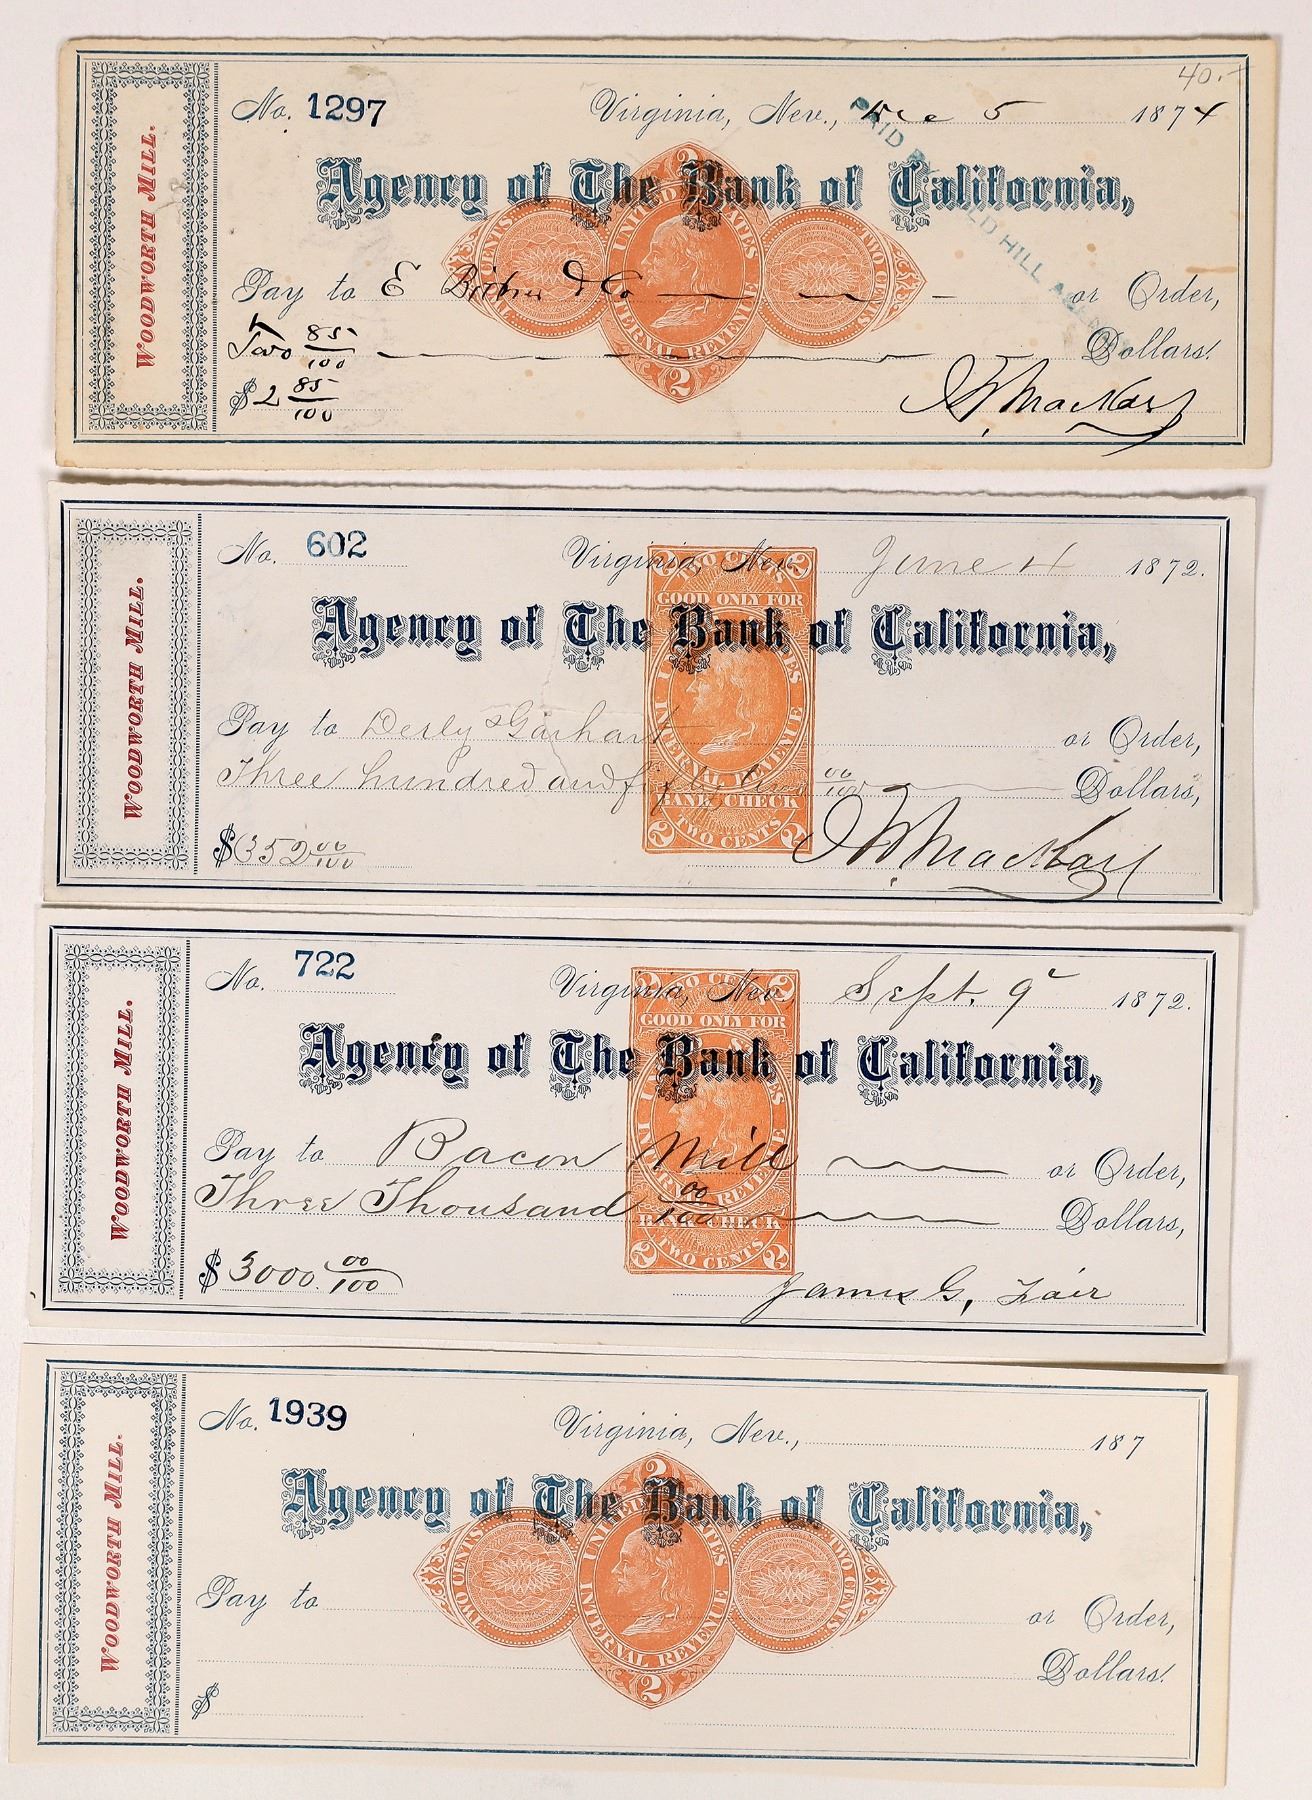 40.-
No. 1297 Virginia, Nev., Dec 5 1874
Agency of The Bank of California,
WOODWORTH MILL.
UNITED STATES INTERNAL REVENUE
TWO CENTS
2
PAID OLD HILL
Pay to E & Co or Order,
Two 85/100 Dollars.
$2 85/100
No. 602 Virginia, Nev. June 4 1872.
TWO CENTS
GOOD ONLY FOR
Agency of The Bank of California,
WOODWORTH MILL.
INTERNAL REVENUE
Pay to Derby & Garhart or Order,
Three hundred and fifty two 00/100 Dollars,
BANK CHECK
TWO CENTS
2 2
$352 00/100
No. 722 Virginia, Nev. Sept. 9 1872.
TWO CENTS
GOOD ONLY FOR
Agency of The Bank of California,
WOODWORTH MILL.
INTERNAL REVENUE
Pay to Bacon Mill or Order,
Three Thousand 00/100 Dollars,
BANK CHECK
TWO CENTS
2 2
$3000. 00/100 James G. Fair
No. 1939 Virginia, Nev., 187
Agency of The Bank of California,
WOODWORTH MILL.
UNITED STATES INTERNAL REVENUE
TWO CENTS TWO CENTS
2 2
Pay to or Order,
Dollars.
$